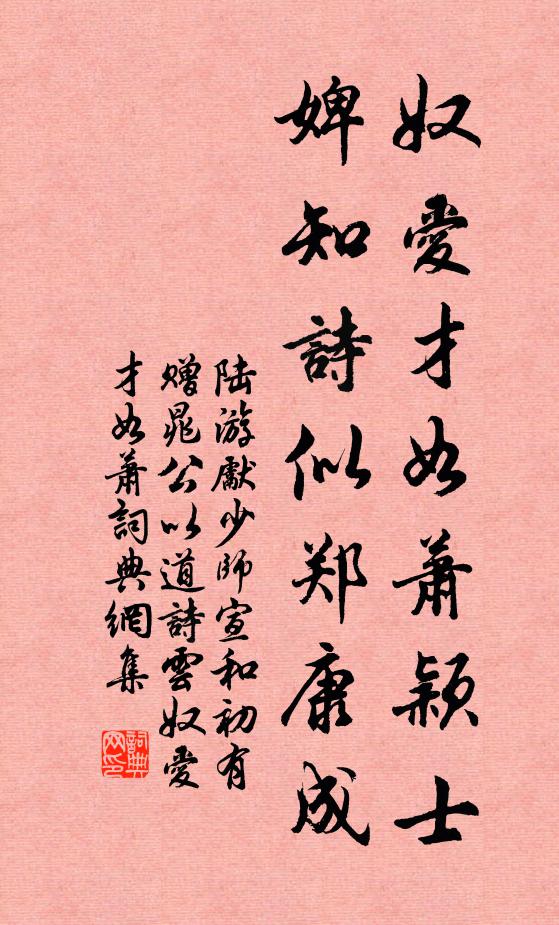 奴愛才如蕭穎士
婢知詩似郑康成
陆游獻少師宣和初有
赠晁公以道詩雲奴愛
才如蕭詞典網集
詞典網印